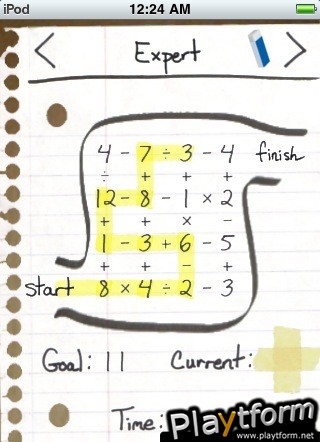 iPod 12:24 AM
Expert
4 - 7 ÷ 3 - 4 finish
÷ + + +
12 - 8 - 1 × 2
+ + × -
1 - 3 + 6 - 5
+ + - +
start 8 × 4 ÷ 2 - 3
Goal: 11 Current:
Time:
Playtform
www.playtform.net